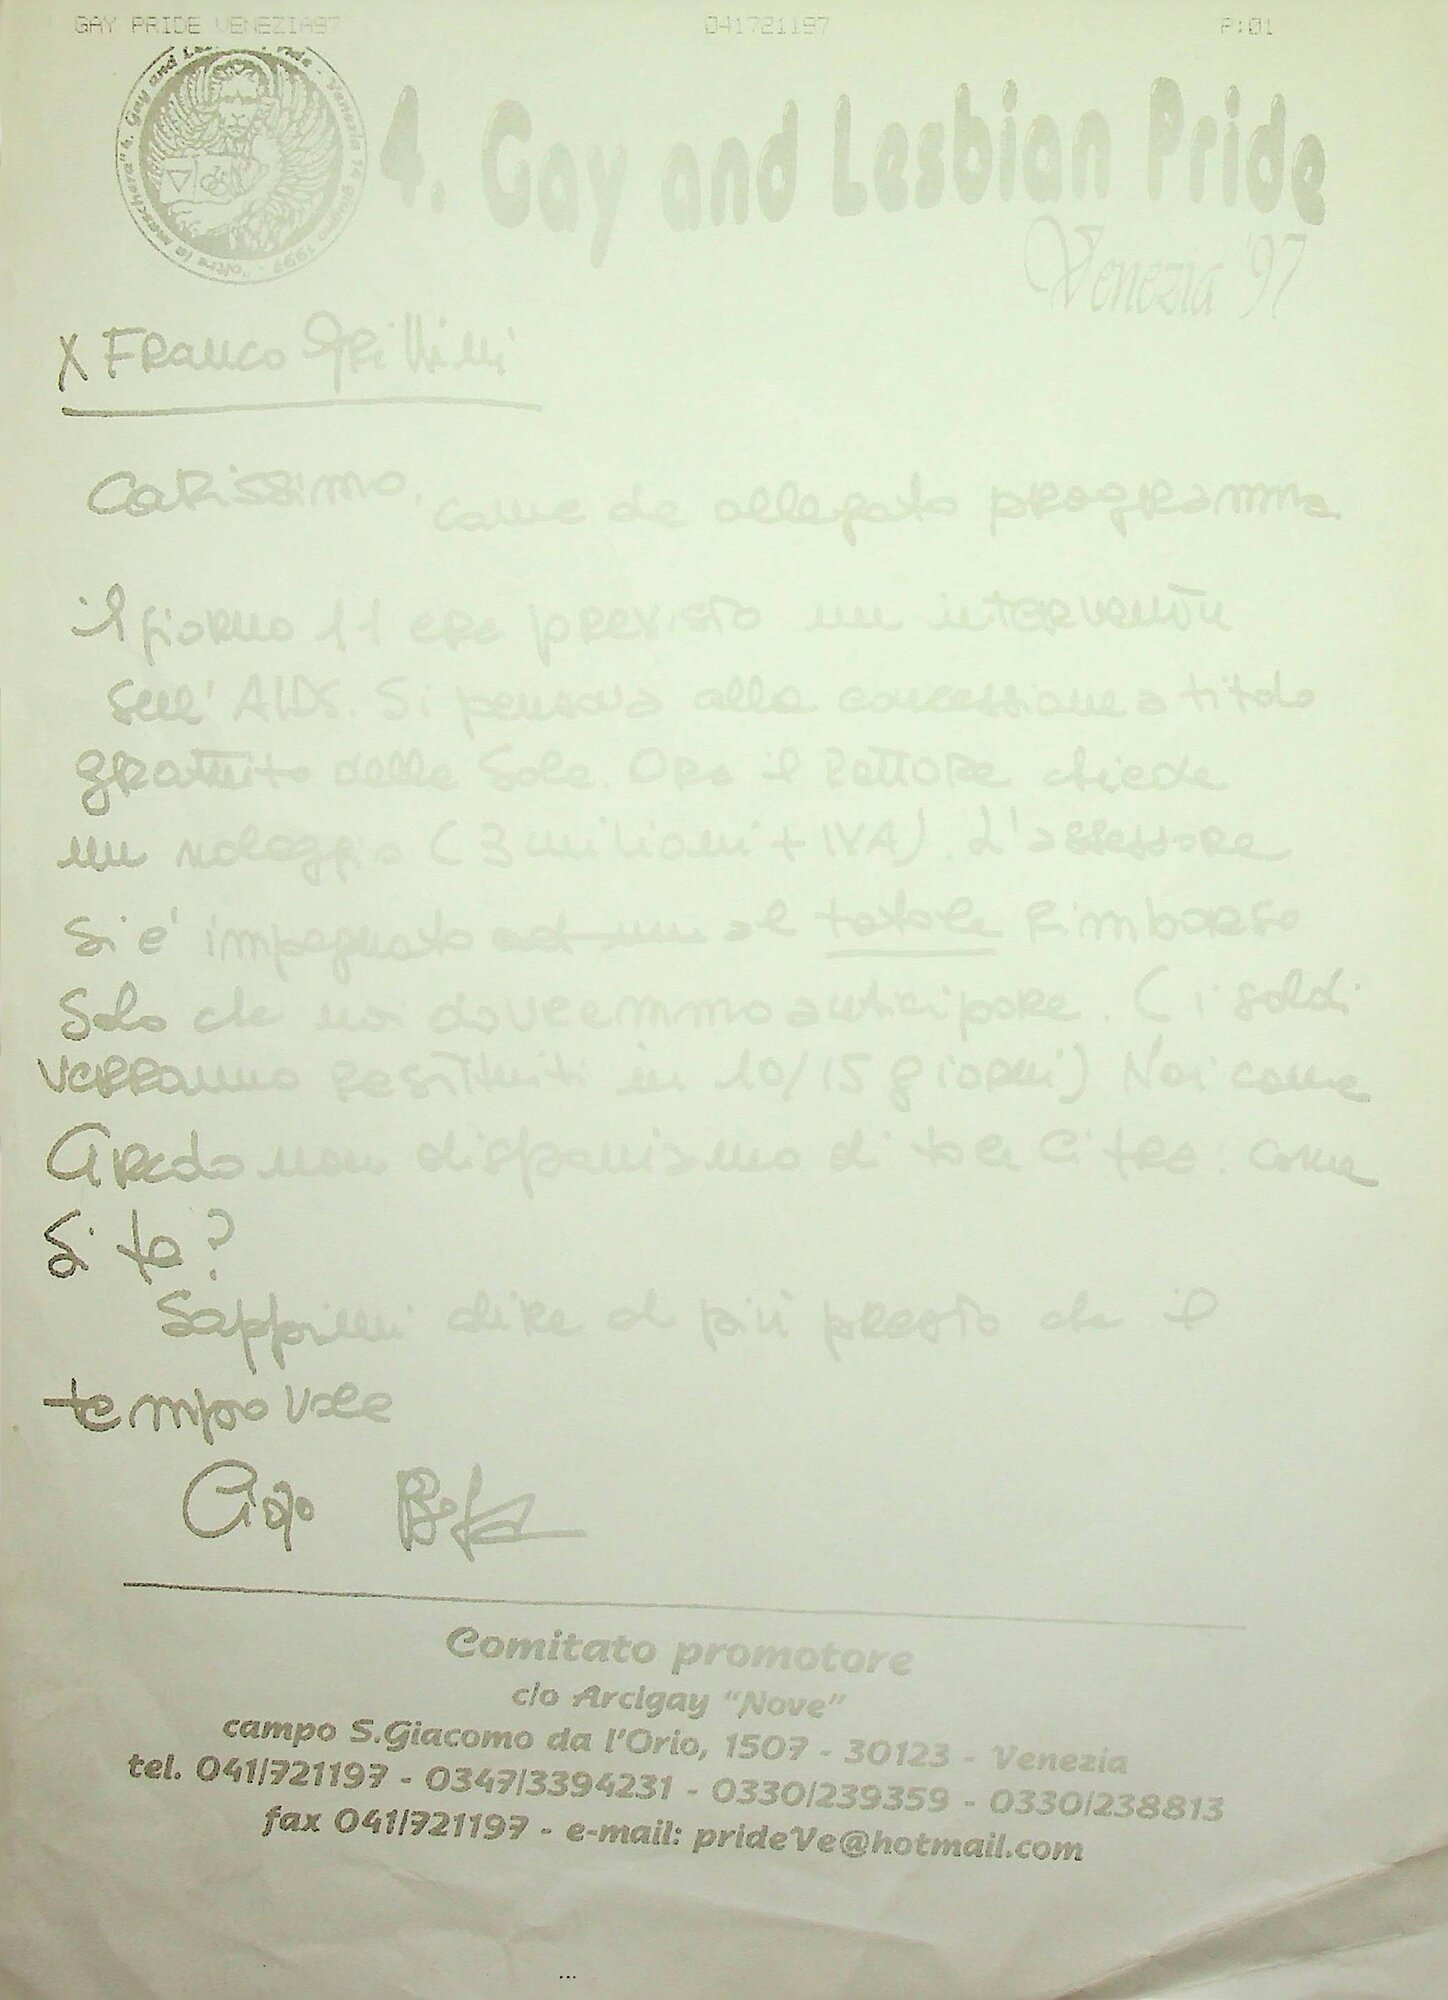 GAY PRIDE VENEZIA97 041721197 P:01
4. Gay and Lesbian Pride - Venezia 14 giugno 1997 - "oltre la maschera"
4. Gay and Lesbian Pride
Venezia '97
X Franco Grillini
Carissimo, come da allegato programma
il giorno 11 era previsto un intervento
sull' AIDS. Si pensava alla concessione a titolo
gratuito della Sala. Ora il Rettore chiede
un noleggio (3 milioni + IVA). L'assessore
si e' impegnato ad un al totale rimborso
Solo che noi dovremmo anticipare. (i soldi
verranno restituiti in 10/15 giorni) Noi come
Circolo non disponiamo di tale cifra: come
si fa?
Sappimi dire al più presto che il
tempo vola
Ciao
Comitato promotore
c/o Arcigay "Nove"
campo S.Giacomo da l'Orio, 1507 - 30123 - Venezia
tel. 041/721197 - 0347/3394231 - 0330/239359 - 0330/238813
fax 041/721197 - e-mail: prideVe@hotmail.com